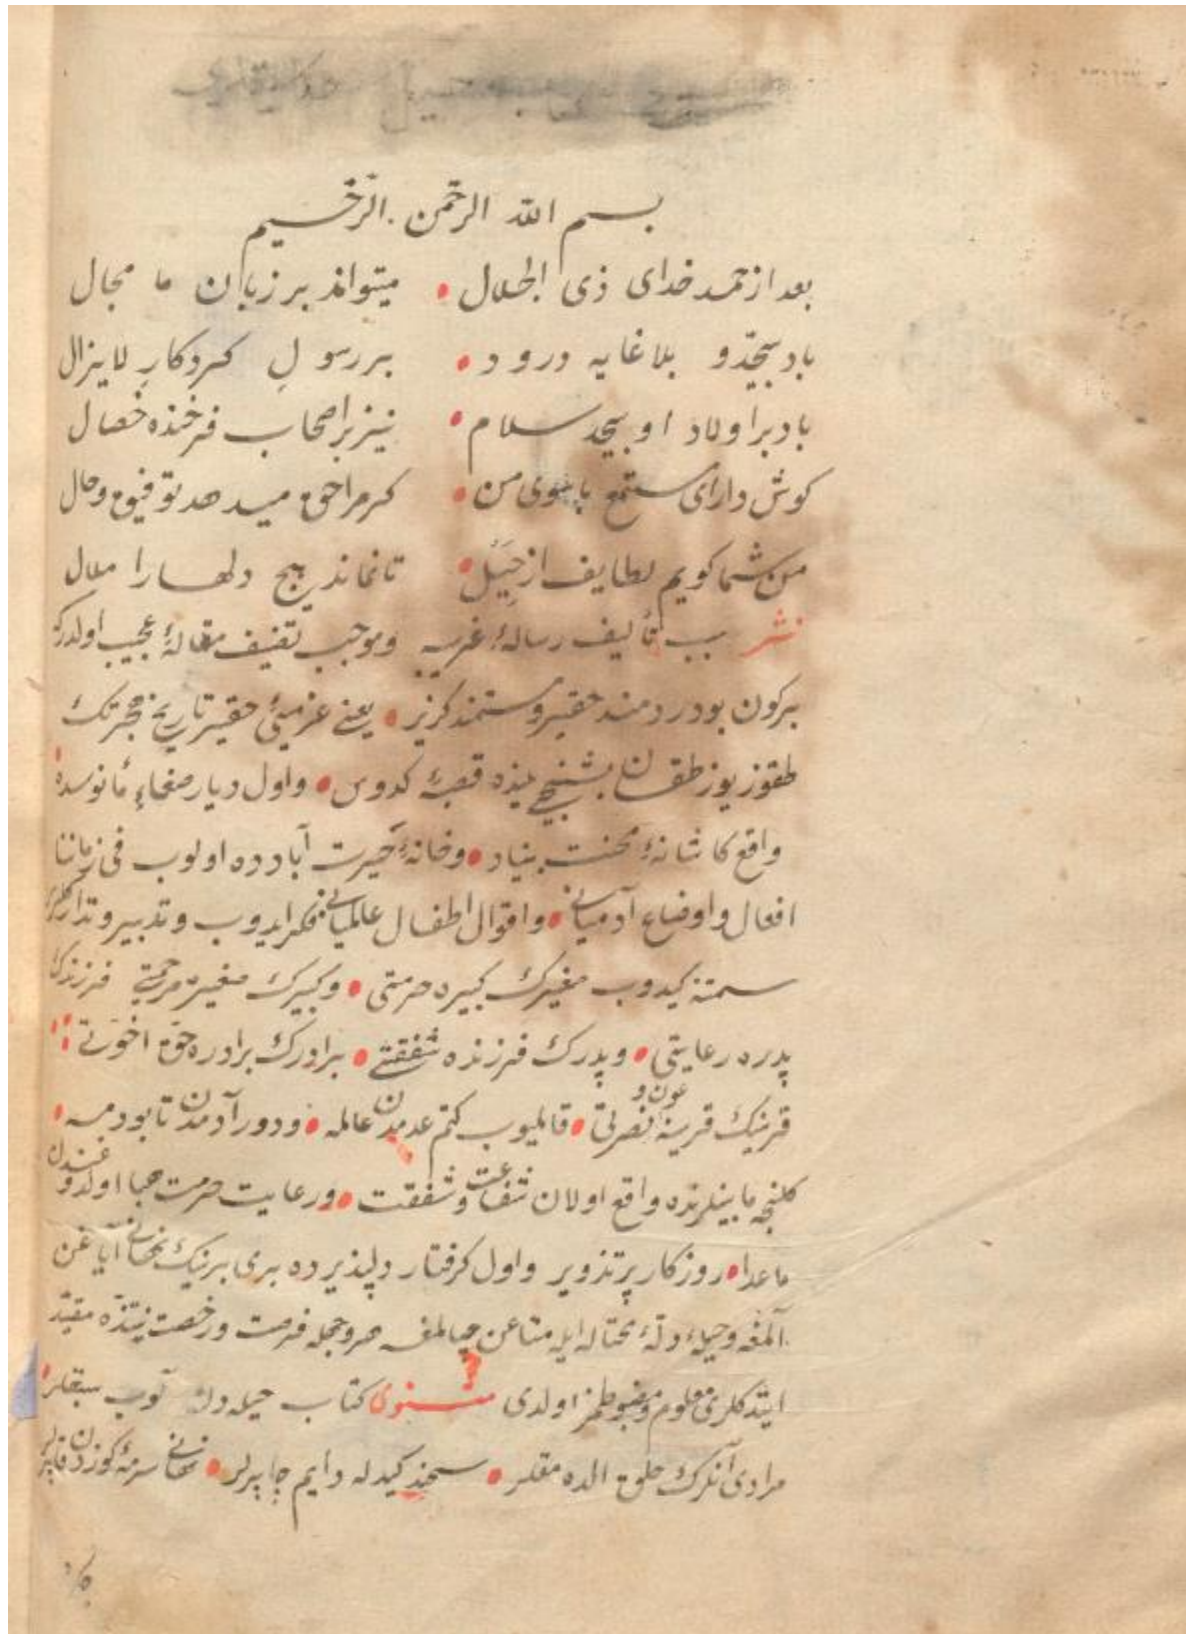 بسم الله الرحمن الرحيم
بعد از حمد خدای ذی الجلال ۰ میتواند بر زبان ما مجال
باد بیحد و بلا غایه درود ۰ بر رسول کردکار لایزال
باد بر اولاد او بیحد سلام ۰ نیز بر اصحاب فرخنده خصال
کوش دار ای مستمع با سوی من ۰ کر مرا حق میدهد توفیق و حال
من شما کویم لطایف از حیل ۰ تا نماند هیچ دلها را ملال
نثر سبب تألیف رسالهٔ غریبه وموجب تصنیف مقالهٔ عجیب اولدرکه
برکون بو دردمند حقیر ومستمند کزیر ۰ یعنی عزمیٔ حقیر تاریخ هجرتک
طقوز یوز طقسان بشنجی ینده قصبهٔ کدوس ۰ واول دیار صفاء مأنوسده ۰
واقع کاشانهٔ محنت بنیاد ۰ وخانهٔ حیرت آبادده اولوب فی زماننا
افعال واوضاع آدمیانی ۰ واقوال اطفال عالمیانی فکر ایدوب وتدبیر وتدارکلری
سمتنه کیدوب صغیرک کبیره حرمتی ۰ وکبیرک صغیره مرحمتی فرزندک
پدره رعایتی ۰ وپدرک فرزنده شفقتی ۰ برادرک برادره حق اخوتی
قرینک قرینه عون و نصرتی ۰ قالیوب کتم عدمدن عالمه ۰ ودور آدمدن تا بودمه ۰
کلنجه مابینلرنده واقع اولان شفاعت وشفقت ۰ ورعایت حرمت هبا اولدوغندن
ماعدا ۰ روزکار پر تزویر واول کرفتار دلپذیرده بری برینک نهانی آیاغن
آلمغه وحیله ودلهٔ محتاله ایله متاعن چالمغه هر وجهله فرصت ورخصت نیتنده مقید
ایتدکلری معلوم ومضبوطمز اولدی مثنوی کتاب حیله دن توب سبقلر ۰
مرادی آنلرک خلق الده مقلر ۰ سخند کیدله دایم چاپرلر ۰ نهانی سرمهٔ کوزدن قاپرلر